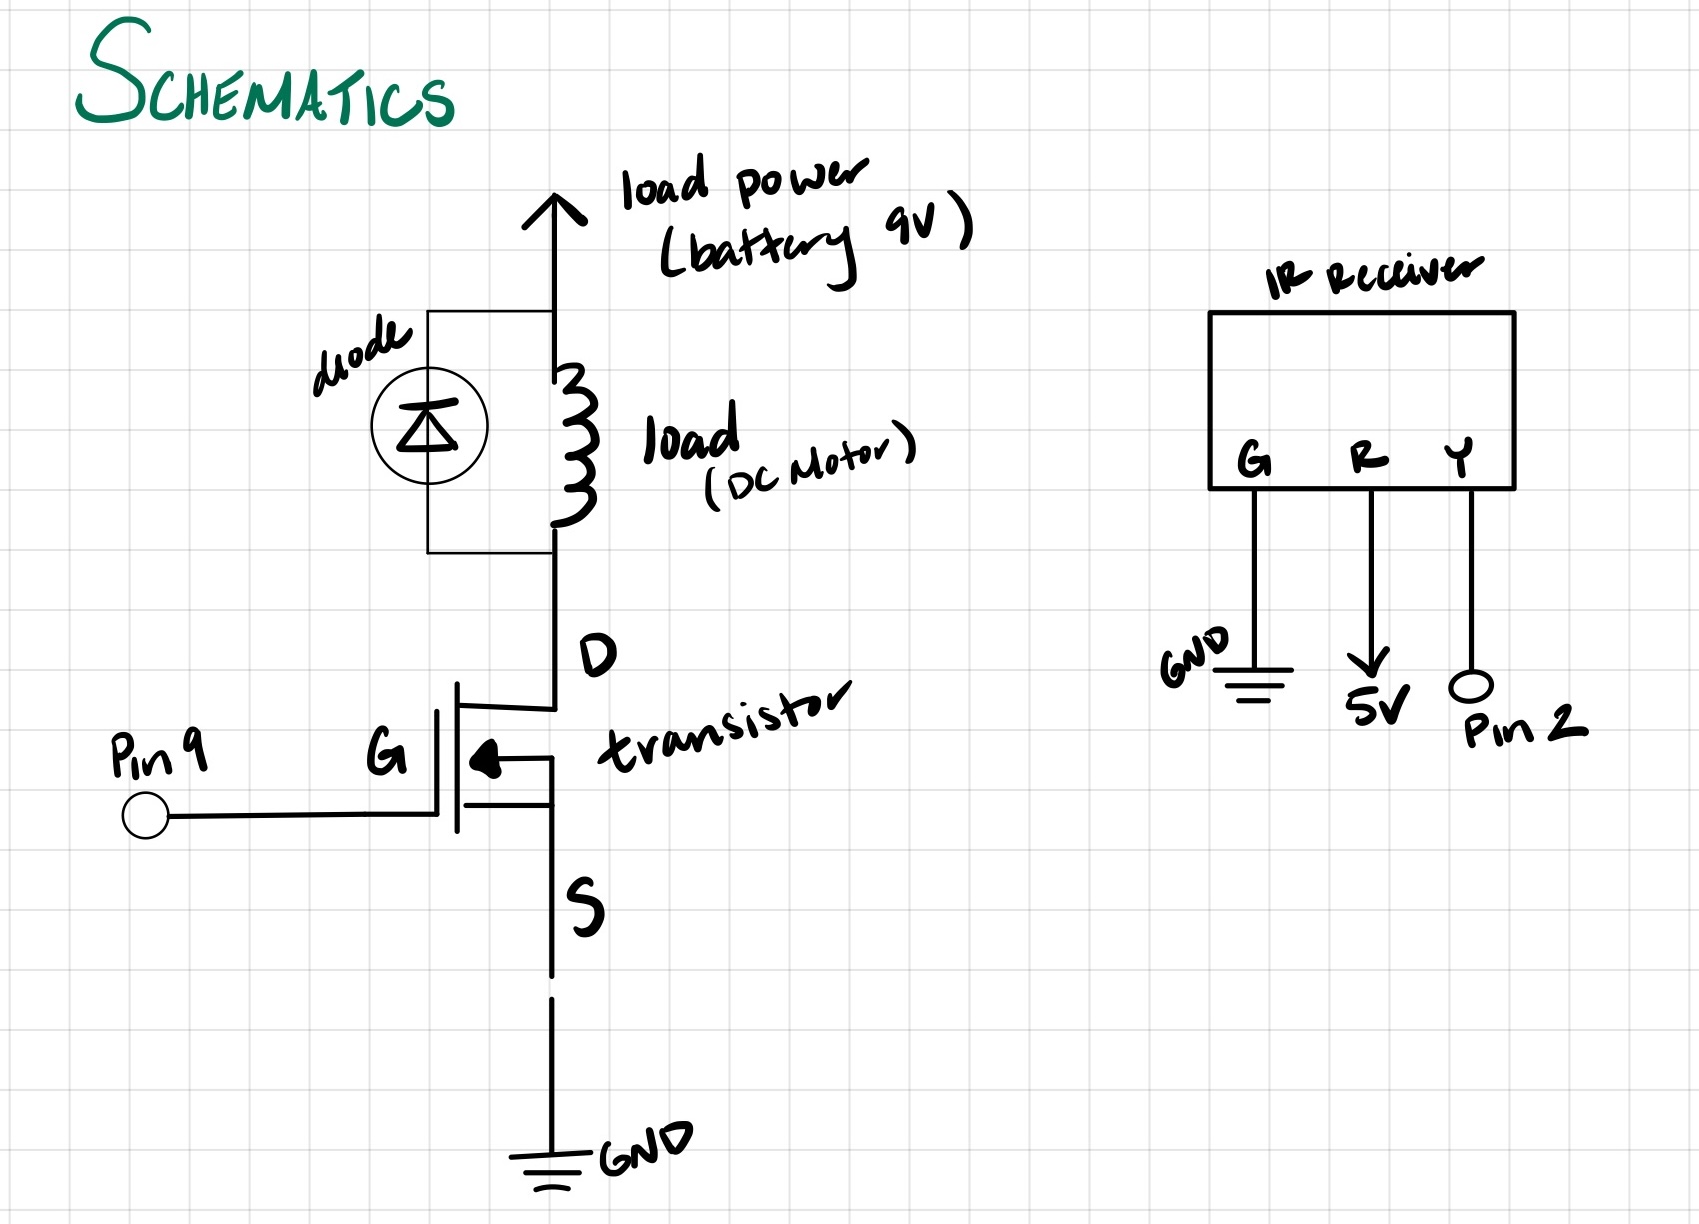 SCHEMATICS
load power
(battery 9V)
diode
load
(DC Motor)
D
transistor
G
Pin 9
S
GND
IR Receiver
G R Y
GND
5V
Pin 2